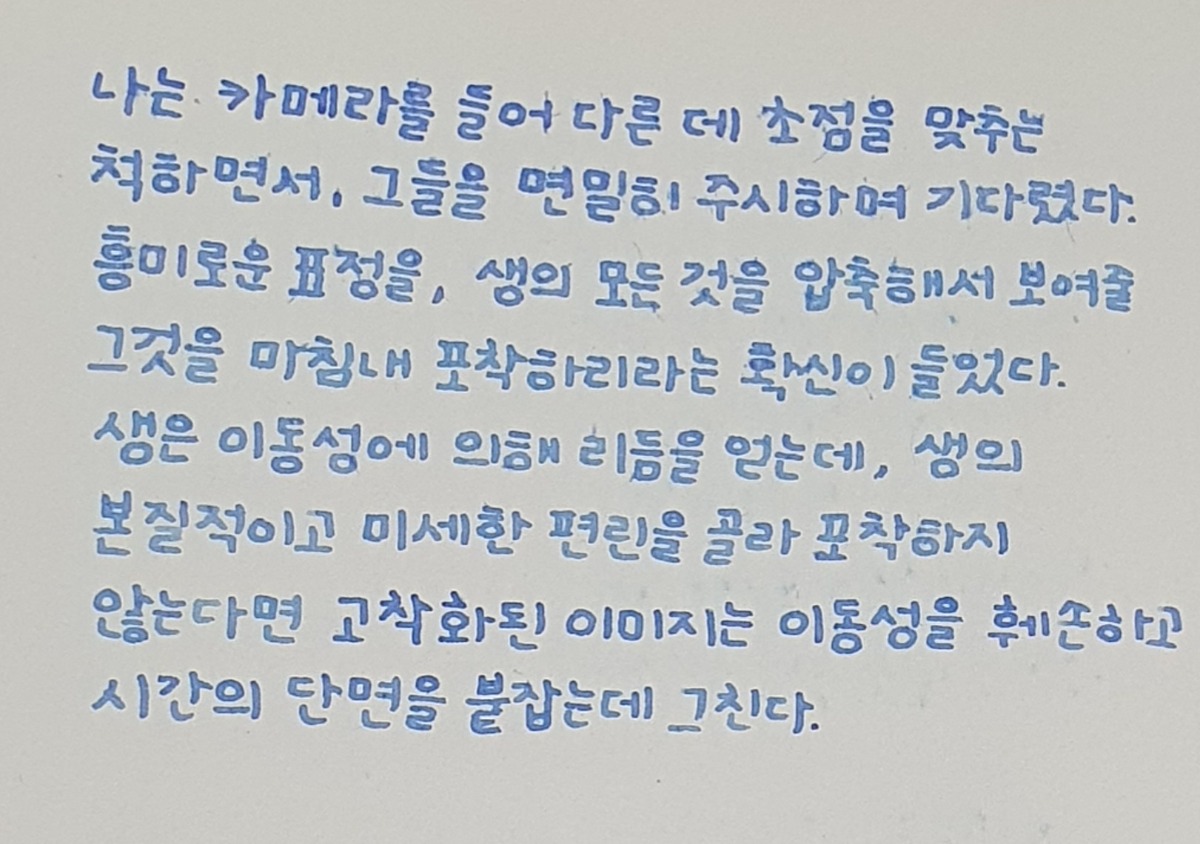 나는 카메라를 들어 다른 데 초점을 맞추는
척하면서, 그들을 면밀히 주시하며 기다렸다.
흥미로운 표정을, 생의 모든 것을 압축해서 보여줄
그것을 마침내 포착하리라는 확신이 들었다.
생은 이동성에 의해 리듬을 얻는데, 생의
본질적이고 미세한 편린을 골라 포착하지
않는다면 고착화된 이미지는 이동성을 훼손하고
시간의 단면을 붙잡는데 그친다.